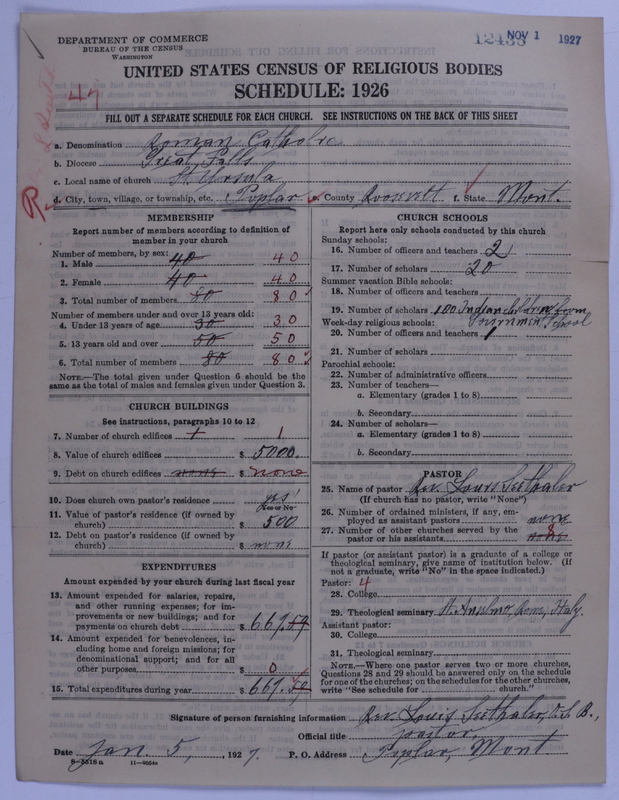 DEPARTMENT OF COMMERCE
BUREAU OF THE CENSUS
WASHINGTON
NOV 1 1927
UNITED STATES CENSUS OF RELIGIOUS BODIES
SCHEDULE: 1926
47
FILL OUT A SEPARATE SCHEDULE FOR EACH CHURCH. SEE INSTRUCTIONS ON THE BACK OF THIS SHEET
a. Denomination Roman Catholic
b. Diocese Great Falls
c. Local name of church St. Ursula
d. City, town, village, or township, etc. Poplar e. County Roosevelt f. State Mont.
MEMBERSHIP
Report number of members according to definition of
member in your church
Number of members, by sex:
1. Male 40 40
2. Female 40 40
3. Total number of members 80 80
Number of members under and over 13 years old:
4. Under 13 years of age 30 30
5. 13 years old and over 50 50
6. Total number of members 80 80
NOTE.—The total given under Question 6 should be the
same as the total of males and females given under Question 3.
CHURCH BUILDINGS
See instructions, paragraphs 10 to 12
7. Number of church edifices 1 1
8. Value of church edifices $ 5000.
9. Debt on church edifices none $ none
10. Does church own pastor's residence yes
Yes or No
11. Value of pastor's residence (if owned by
church) $ 500
12. Debt on pastor's residence (if owned by
church) $ none
EXPENDITURES
Amount expended by your church during last fiscal year
13. Amount expended for salaries, repairs,
and other running expenses; for im-
provements or new buildings; and for
payments on church debt $ 667.
14. Amount expended for benevolences, in-
cluding home and foreign missions; for
denominational support; and for all
other purposes $ 0
15. Total expenditures during year $ 667.
CHURCH SCHOOLS
Report here only schools conducted by this church
Sunday schools:
16. Number of officers and teachers 2
17. Number of scholars 20
Summer vacation Bible schools:
18. Number of officers and teachers
19. Number of scholars 100 Indian children from
Week-day religious schools: Government School
20. Number of officers and teachers 1
21. Number of scholars
Parochial schools:
22. Number of administrative officers
23. Number of teachers—
a. Elementary (grades 1 to 8)
b. Secondary
24. Number of scholars—
a. Elementary (grades 1 to 8)
b. Secondary
PASTOR
25. Name of pastor Rev. Louis Seethaler
(If church has no pastor, write "None")
26. Number of ordained ministers, if any, em-
ployed as assistant pastors none
27. Number of other churches served by the 8
pastor or his assistants none
If pastor (or assistant pastor) is a graduate of a college or
theological seminary, give name of institution below. (If
not a graduate, write "No" in the space indicated.)
Pastor: 4
28. College
29. Theological seminary St. Anselmo, Rome, Italy.
Assistant pastor:
30. College
31. Theological seminary
NOTE.—Where one pastor serves two or more churches,
Questions 28 and 29 should be answered only on the schedule
for one of the churches; on the schedules for the other churches,
write "See schedule for church."
Signature of person furnishing information Rev. Louis Seethaler, O.S.B.,
Official title pastor
Date Jan. 5, 1927. P. O. Address Poplar, Mont.
8-5518a 11-9054a